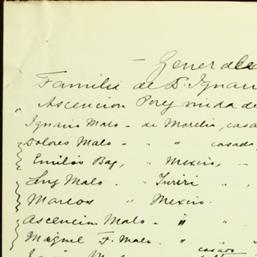 - Generales
Familia de D. Ignac
Ascencion Perez viuda de
Ignacio Malo - de Morelia, casa
Dolores Malo - " " casada,
Emilio Baz, " Mexico, "
Luz Malo - " Yuriri " "
Marcos " Mexico.
Ascencion Malo - " "
Miguel F. Malo. - " "
casado